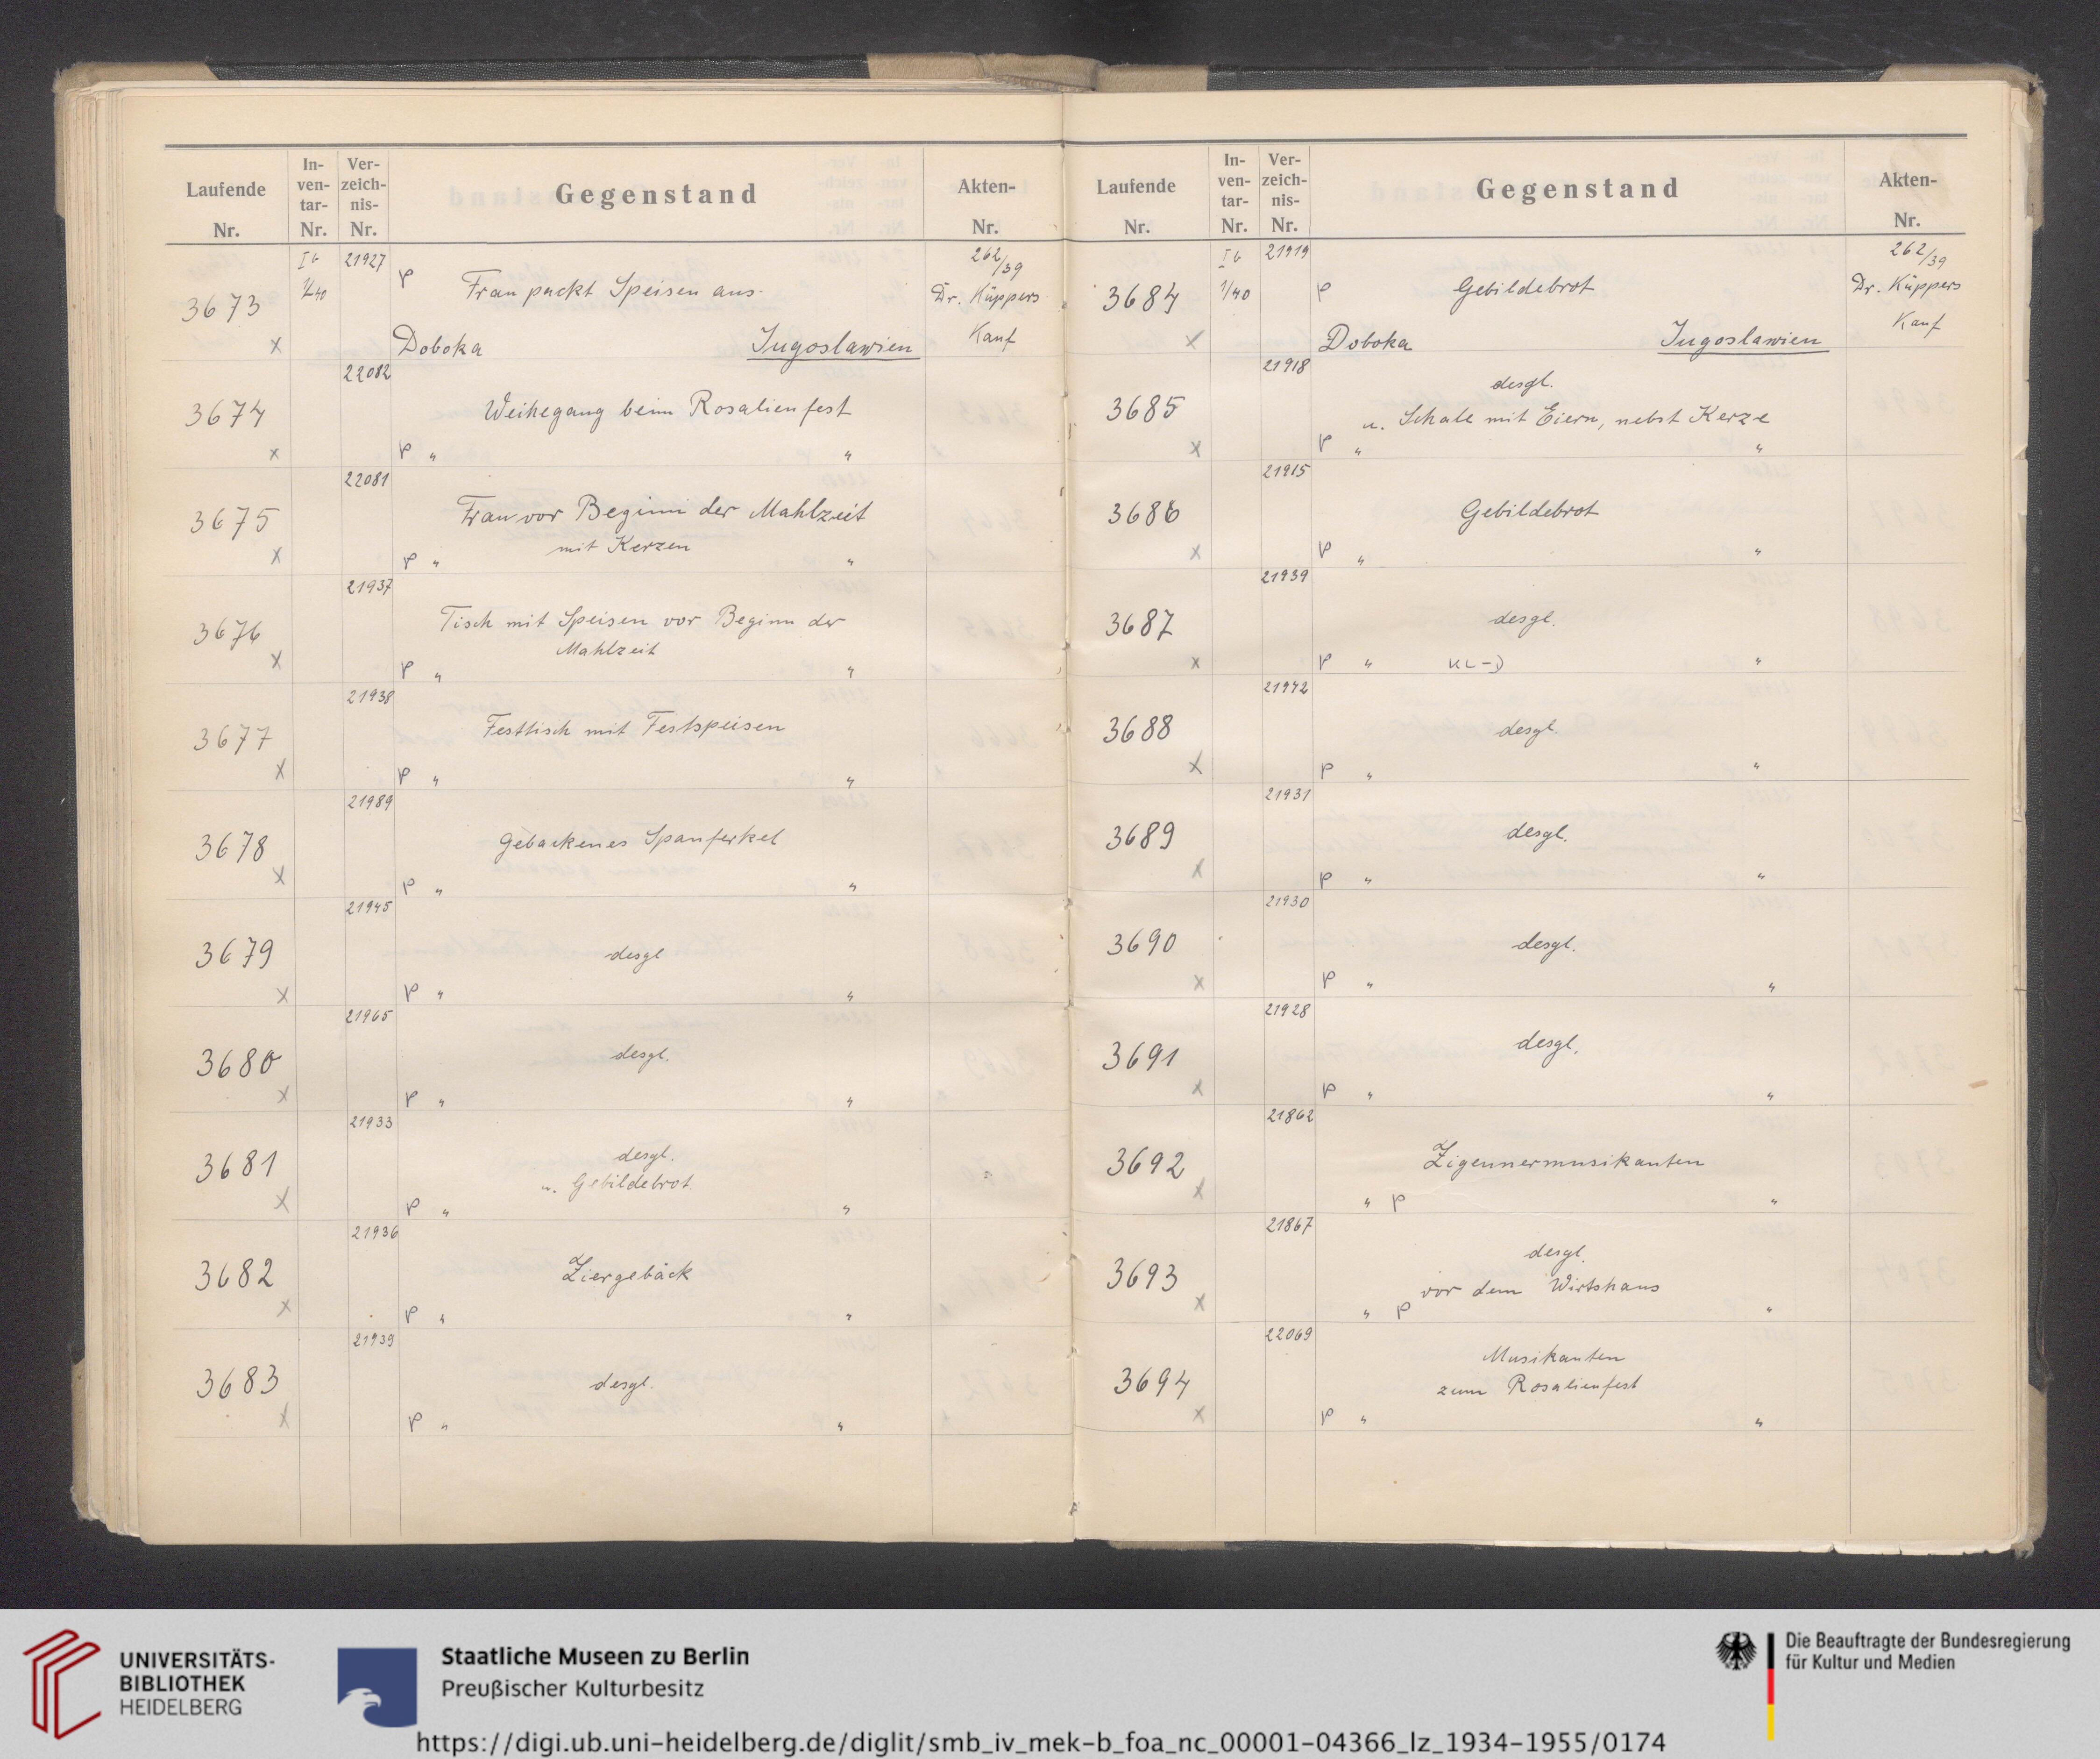 Laufende Nr.
In-ven-tar-Nr.
Ver-zeich-nis-Nr.
Gegenstand
Akten-Nr.
3673 x
I b 1/40
21927
p Frau packt Speisen aus.
Doboka Jugoslawien
262/39
Dr. Küppers
Kauf
3674 x
22082
Weihegang beim Rosalienfest
p " "
3675 x
22081
Frau vor Beginn der Mahlzeit
mit Kerzen
p " "
3676 x
21937
Tisch mit Speisen vor Beginn der
Mahlzeit
p " "
3677 x
21938
Festtisch mit Festspeisen
p " "
3678 x
21989
Gebackenes Spanferkel
p " "
3679 x
21945
desgl
p " "
3680 x
21965
desgl.
p " "
3681 x
21933
desgl.
u. Gebildebrot
p " "
3682 x
21936
Ziergebäck
p " "
3683 x
21939
desgl.
p " "
Laufende Nr.
In-ven-tar-Nr.
Ver-zeich-nis-Nr.
Gegenstand
Akten-Nr.
3684 x
I b 1/40
21919
p Gebildebrot
Doboka Jugoslawien
262/39
Dr. Küppers
Kauf
3685 x
21918
desgl.
u. Schale mit Eiern, nebst Kerze
p " "
3686 x
21915
Gebildebrot
p " "
3687 x
21939
desgl.
p " KL-D "
3688 x
21942
desgl.
p " "
3689 x
21931
desgl.
p " "
3690 x
21930
desgl.
p " "
3691 x
21928
desgl.
p " "
3692 x
21862
Zigeunermusikanten
" p "
3693 x
21867
desgl.
vor dem Wirtshaus
" p "
3694 x
22069
Musikanten
zum Rosalienfest
p " "
UNIVERSITÄTS-
BIBLIOTHEK
HEIDELBERG
Staatliche Museen zu Berlin
Preußischer Kulturbesitz
Die Beauftragte der Bundesregierung
für Kultur und Medien
https://digi.ub.uni-heidelberg.de/diglit/smb_iv_mek-b_foa_nc_00001-04366_lz_1934-1955/0174